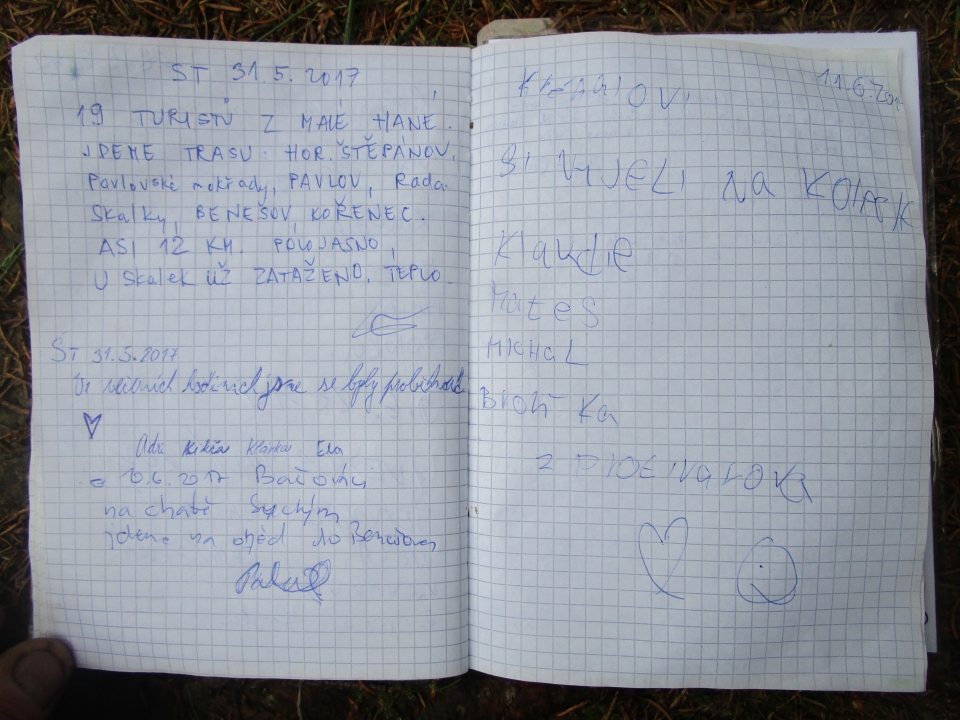 ST 31.5.2017
19 TURISTŮ Z MALÉ HANÉ.
JDEME TRASU: HOR. ŠTĚPÁNOV,
Pavlovské mokřady, PAVLOV, Rada.
Skalky, BENEŠOV, KOŘENEC.
ASI 12 KM. POLOJASNO,
U Skalek UŽ ZATAŽENO. TEPLO.
ST 31.5.2017
hodinách jsme se byly
Klárka Ela
10.6.2017
na chatě Suchým
jdeme na oběd do Benešova
11.6.201
SI VYJELI NA KOLAČK
Klaudie
Mates
MICHAL
BROŇKA
Z